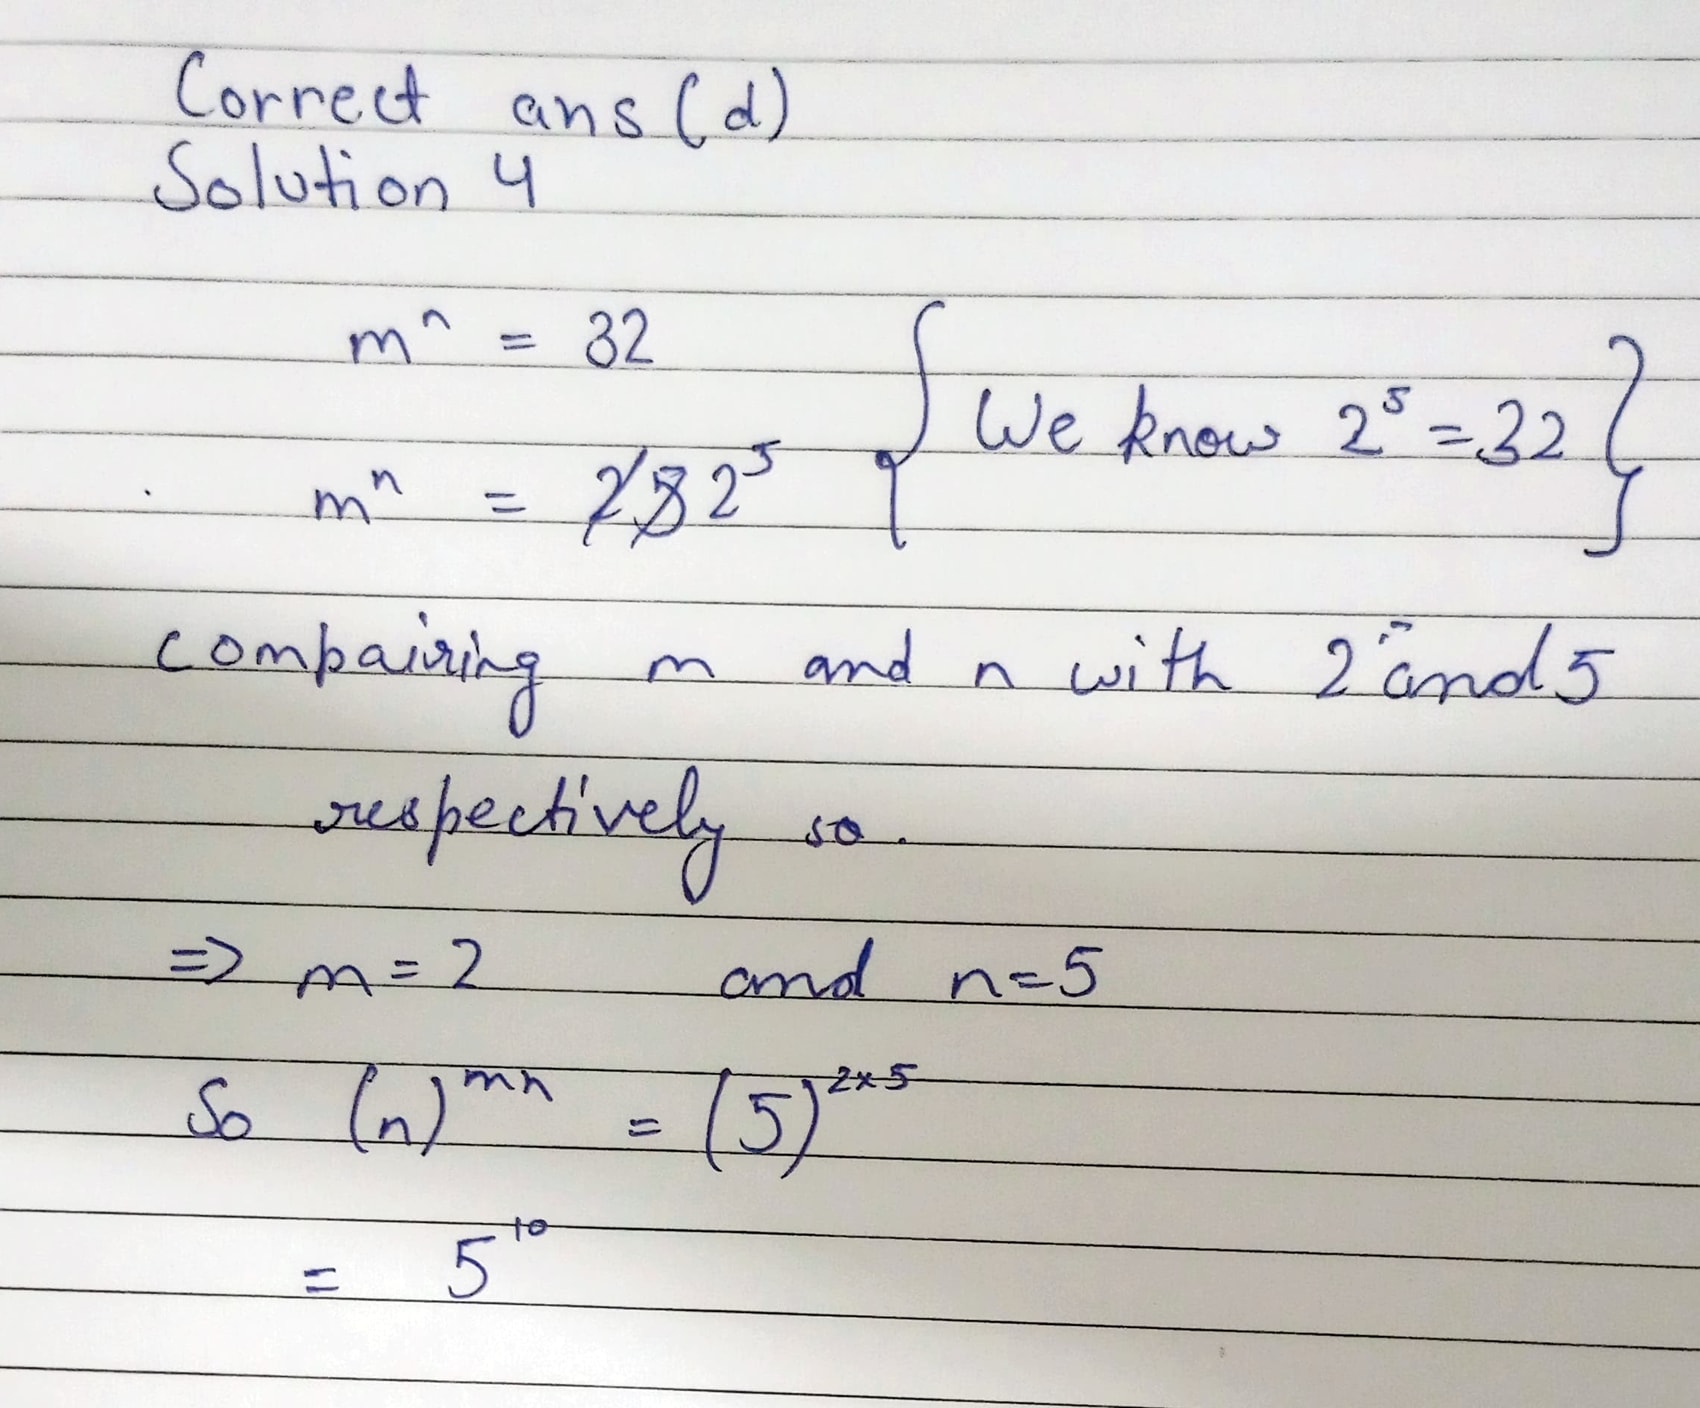 Correct ans (d)
Solution 4
mⁿ = 32
{ We know 2⁵ = 32 }
mⁿ = 2⁵
compairing m and n with 2 and 5
respectively so.
=> m = 2 and n = 5
So (n)ᵐⁿ = (5)²ˣ⁵
= 5¹⁰